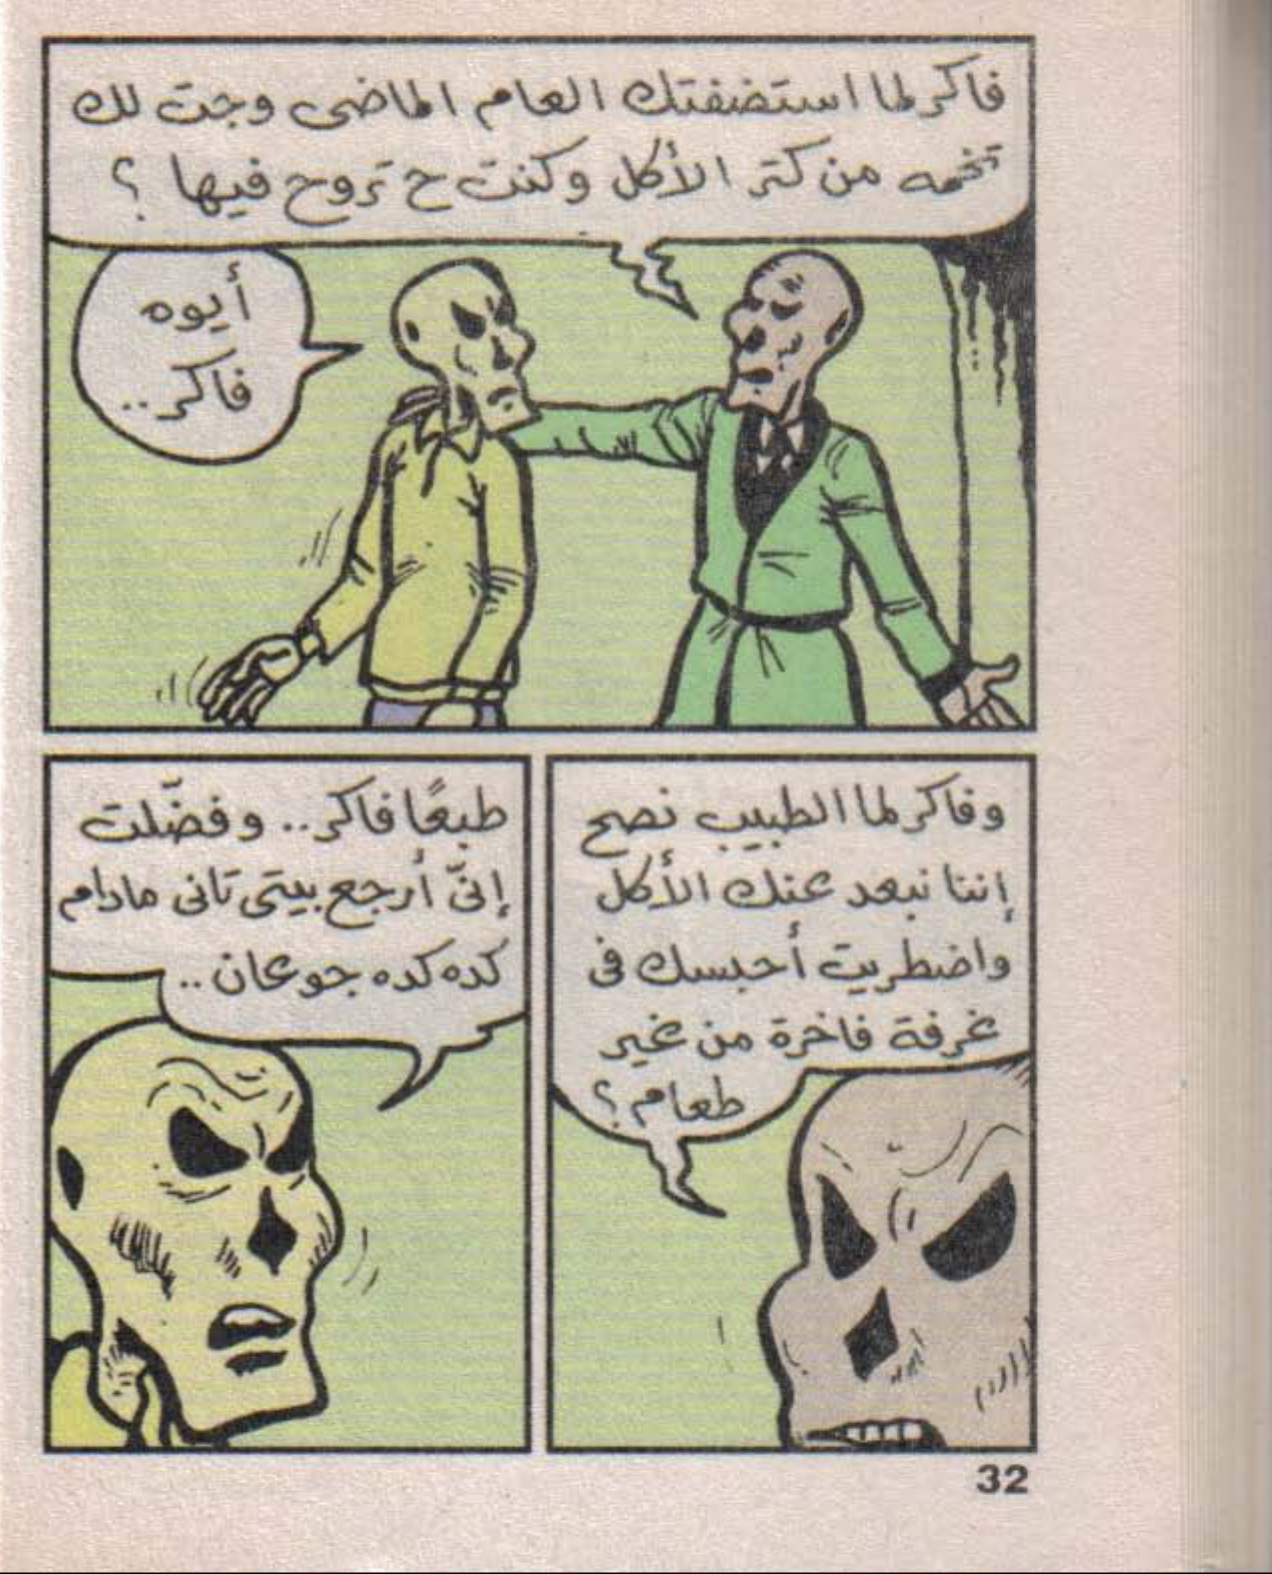 فاكر لما استضفتك العام الماضى وجت لك
تخمه من كتر الأكل وكنت ح تروح فيها ؟
أيوه
فاكر..
وفاكر لما الطبيب نصح
إننا نبعد عنك الأكل
واضطريت أحبسك فى
غرفة فاخرة من غير
طعام ؟
طبعًا فاكر.. وفضّلت
إنّى أرجع بيتى تانى مادام
كده كده جوعان ..
32